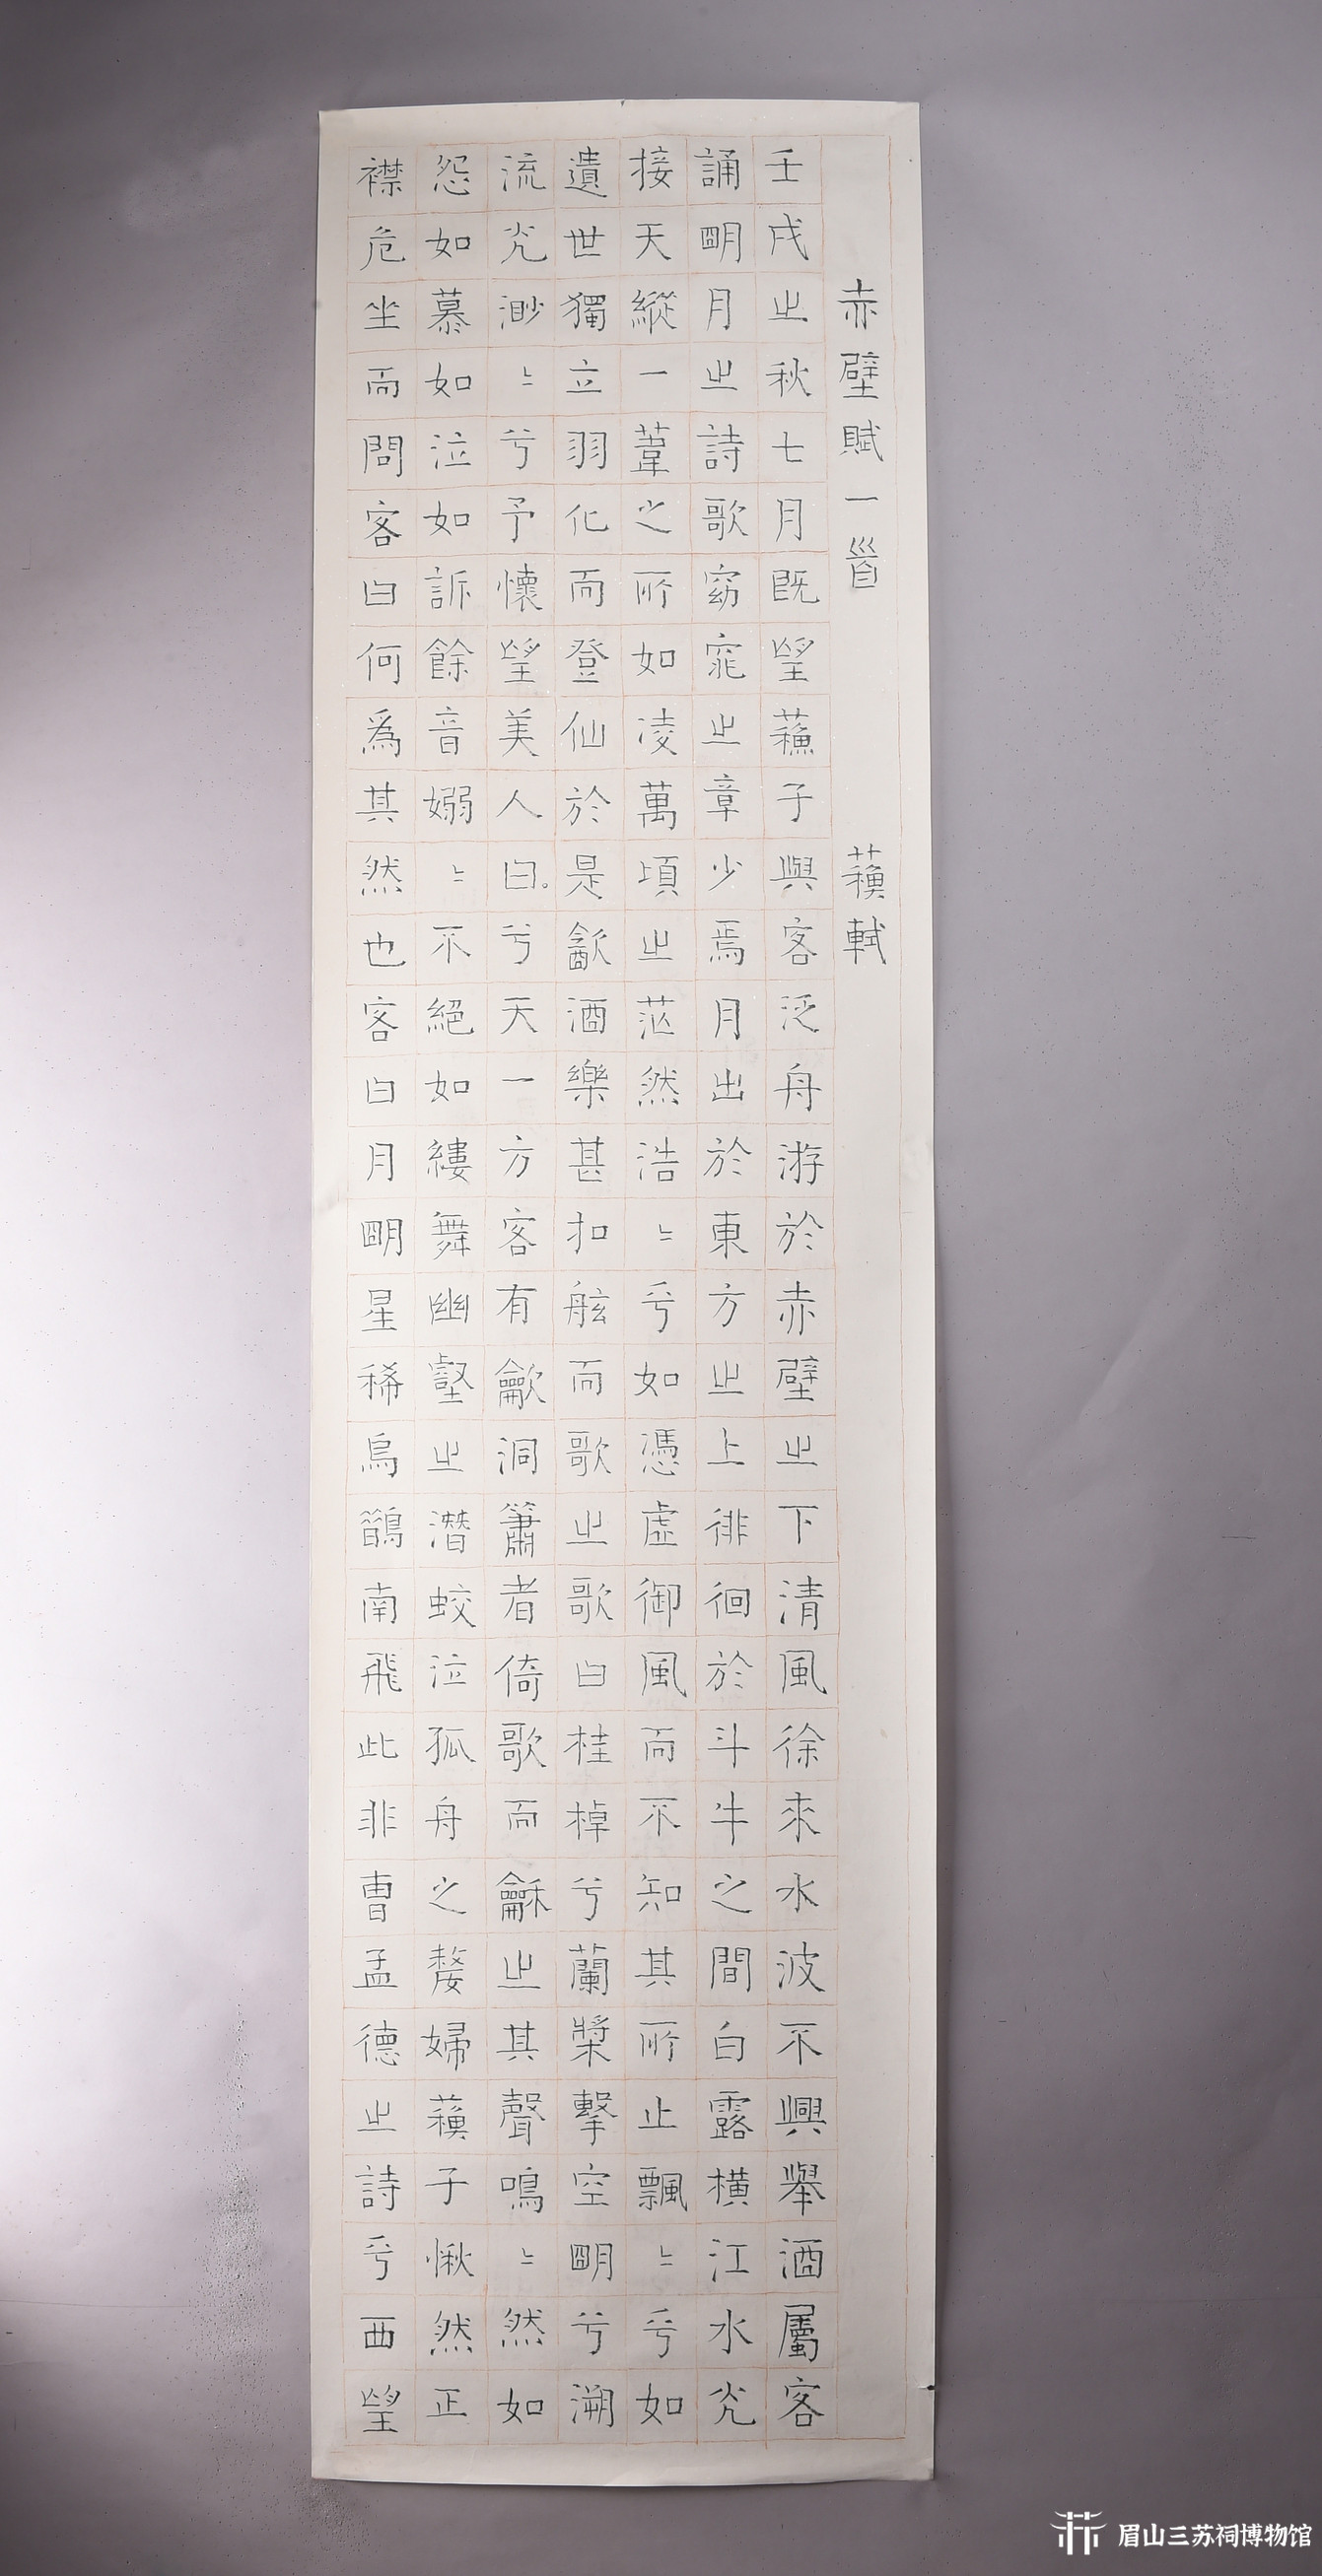 赤壁賦一首 蘓軾
壬戌之秋七月既望蘓子與客泛舟游於赤壁之下清風徐來水波不興舉酒屬客
誦明月之詩歌窈窕之章少焉月出於東方之上徘徊於斗牛之間白露橫江水光
接天縱一葦之所如凌萬頃之茫然浩〻乎如馮虛御風而不知其所止飄〻乎如
遺世獨立羽化而登仙於是飲酒樂甚扣舷而歌之歌曰桂棹兮蘭槳擊空明兮溯
流光渺〻兮予懷望美人曰。兮天一方客有歈洞簫者倚歌而龢之其聲鳴〻然如
怨如慕如泣如訴餘音嫋〻不絕如縷舞幽壑之潛蛟泣孤舟之嫠婦蘓子愀然正
襟危坐而問客曰何爲其然也客曰月明星稀烏鵲南飛此非曹孟德之詩乎西望
眉山三苏祠博物馆